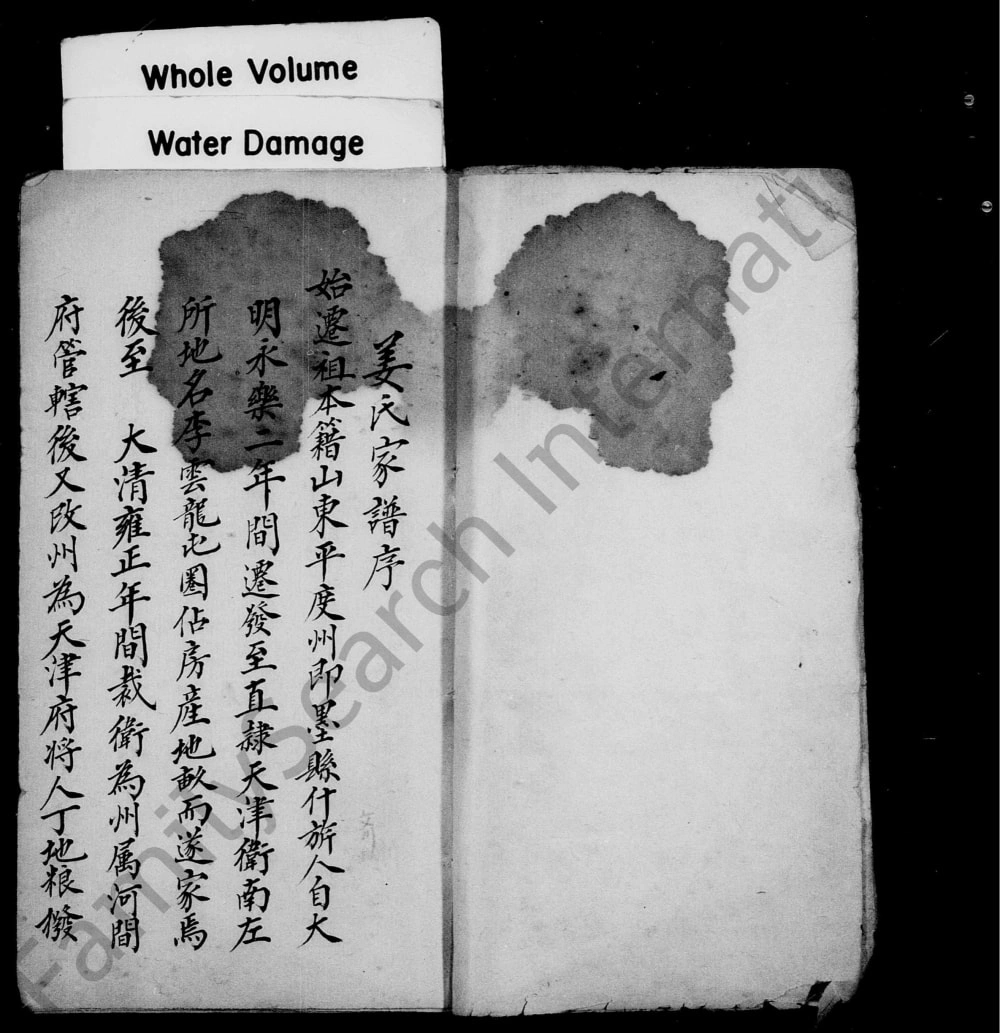 Whole Volume
Water Damage
姜氏家譜序
始遷祖本籍山東平度州即墨縣什旂人自大
明永樂二年間遷發至直隸天津衛南左
所地名李雲龍屯圈佔房産地畝而遂家焉
後至 大清雍正年間裁衛為州属河間
府管轄後又改州為天津府将人丁地粮撥
FamilySearch Internati